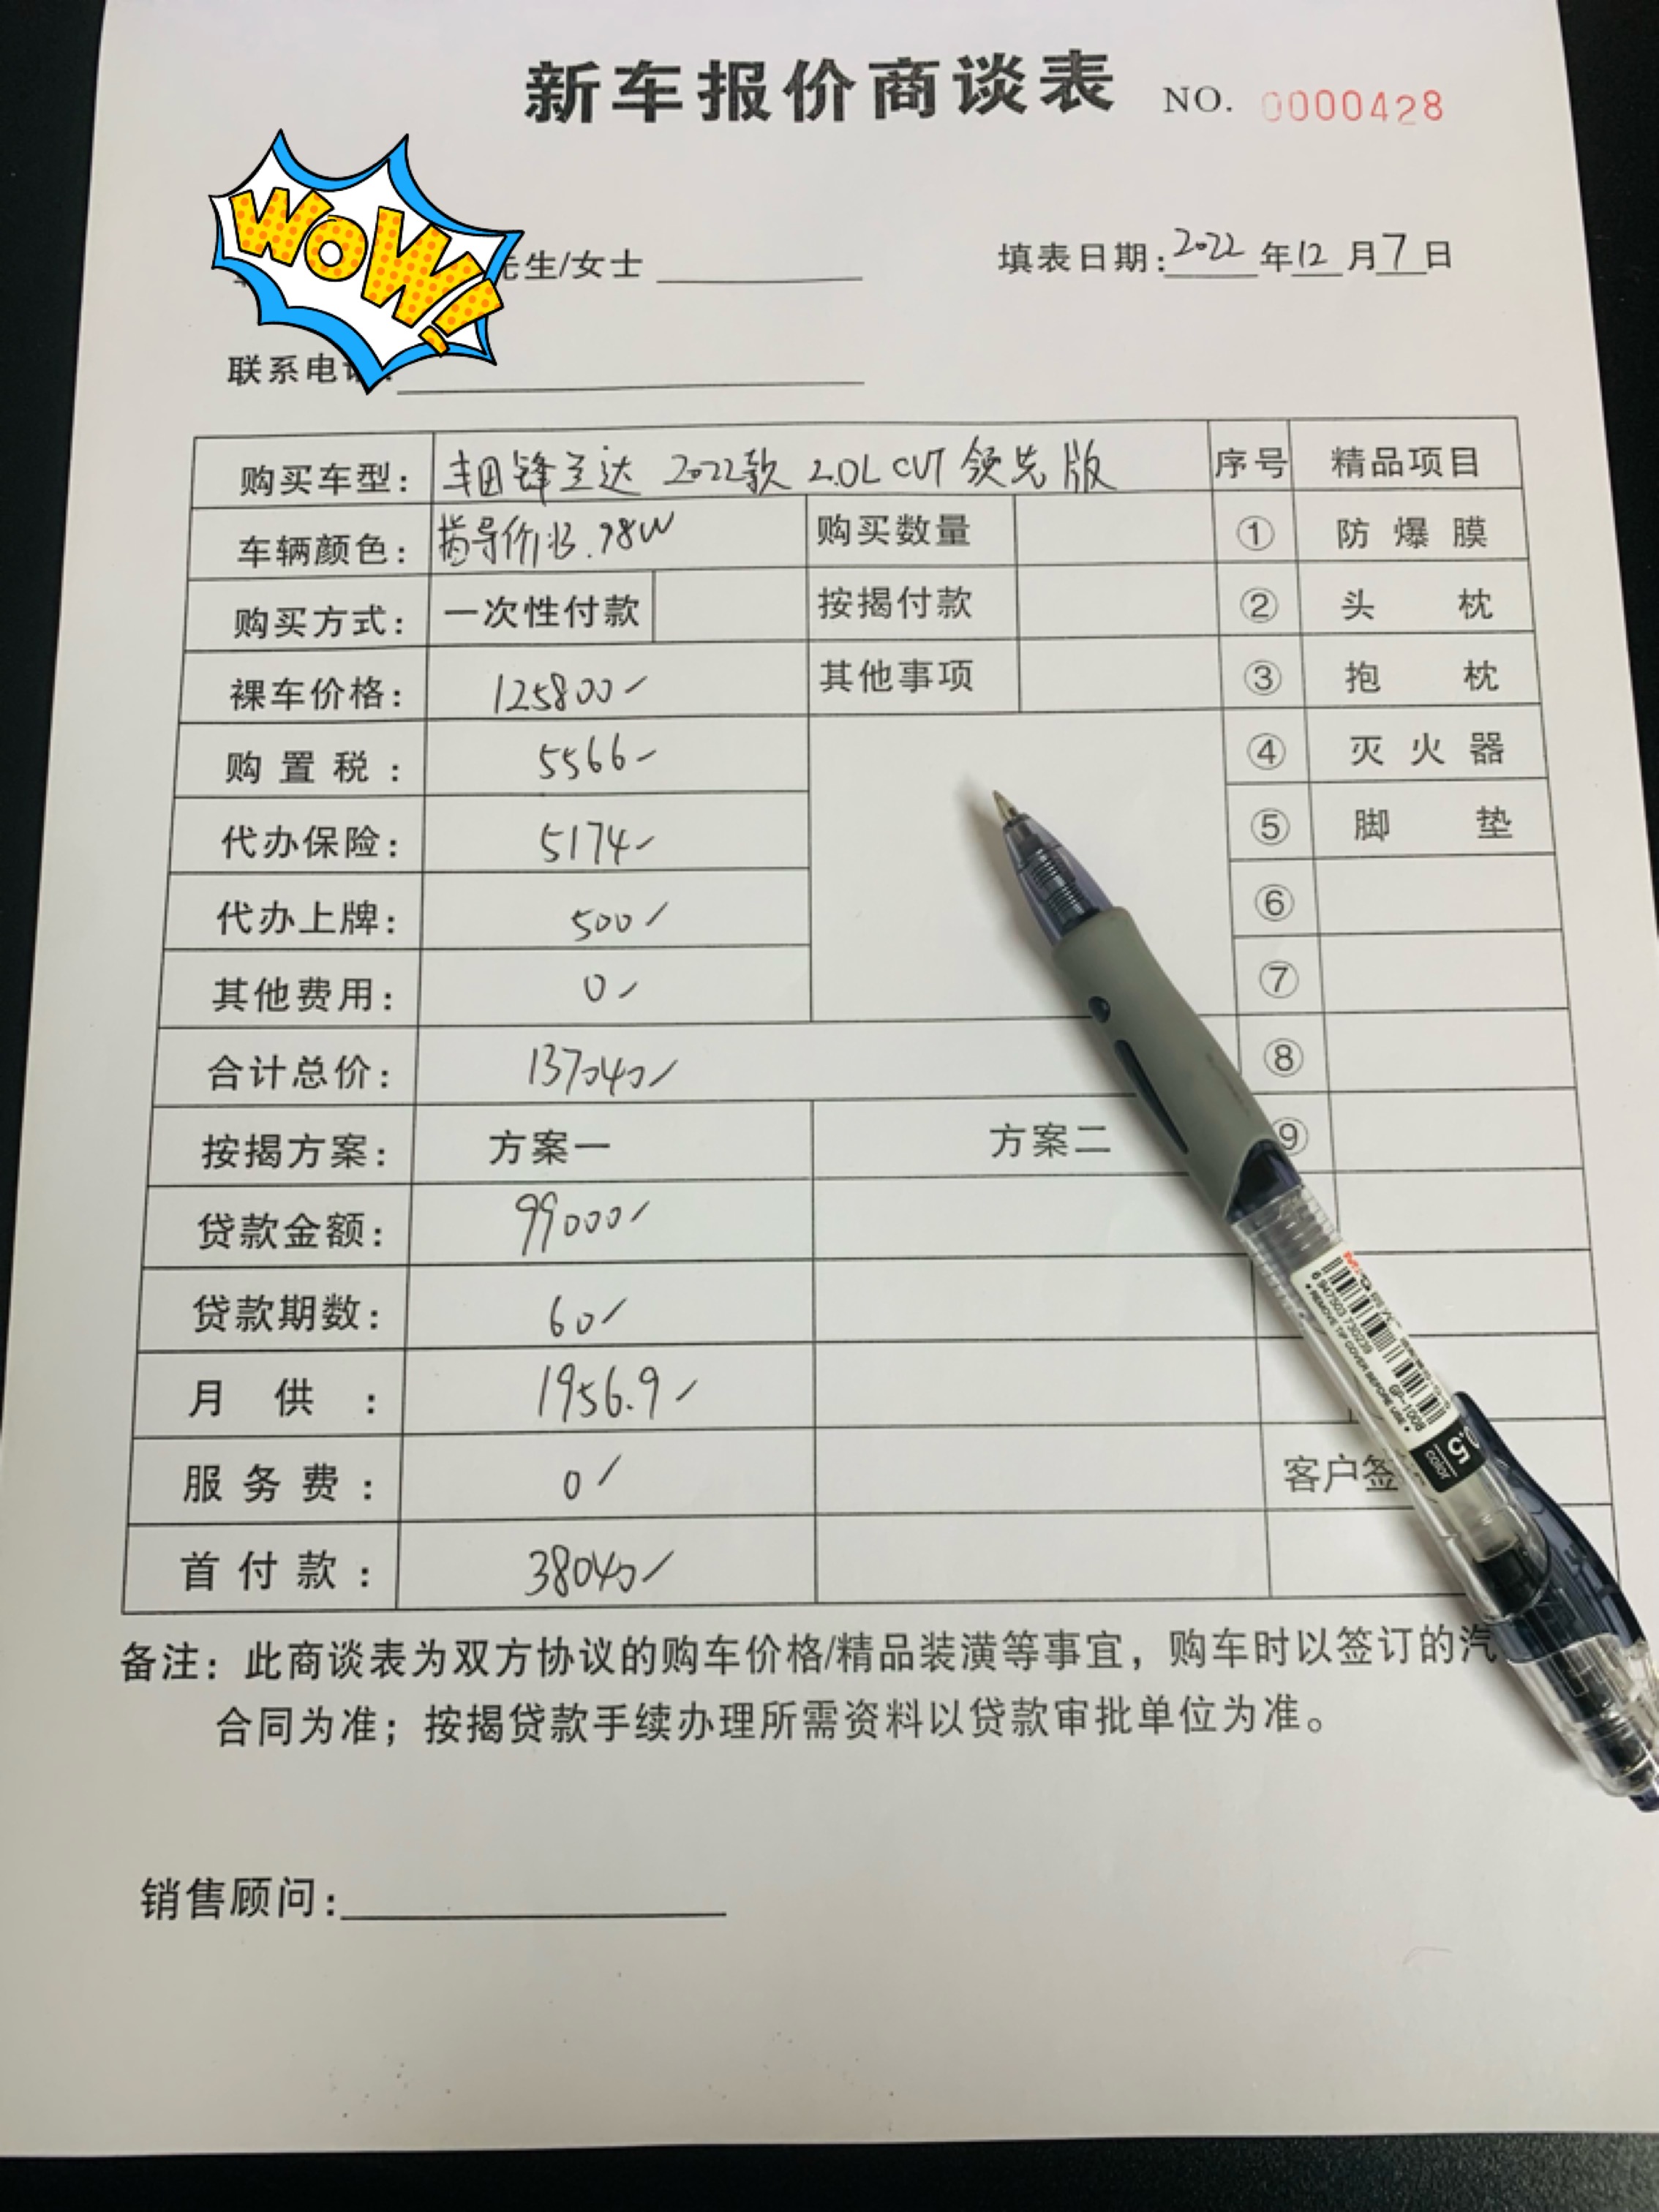 新车报价商谈表 NO. 0000428
WOW!
先生/女士 填表日期:2022年12月7日
联系电话:
购买车型: 丰田锋兰达 2022款 2.0L CVT 领先版 序号 精品项目
车辆颜色: 指导价13.98W 购买数量 ① 防爆膜
购买方式: 一次性付款 按揭付款 ② 头枕
裸车价格: 125800 其他事项 ③ 抱枕
购置税: 5566 ④ 灭火器
代办保险: 5174 ⑤ 脚垫
代办上牌: 500 ⑥
其他费用: 0 ⑦
合计总价: 137040 ⑧
按揭方案: 方案一 方案二 ⑨
贷款金额: 99000
贷款期数: 60
月供: 1956.9
服务费: 0 客户签
首付款: 38040
备注: 此商谈表为双方协议的购车价格/精品装潢等事宜，购车时以签订的汽
合同为准；按揭贷款手续办理所需资料以贷款审批单位为准。
销售顾问:
6 947503 730239
REMOVE TIP COVER BEFORE USE
GP-1008
0.5
color